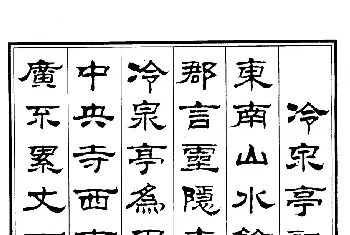 冷泉亭
東南山水餘
郡言靈隱
冷泉亭爲
中央寺西
廣不累丈